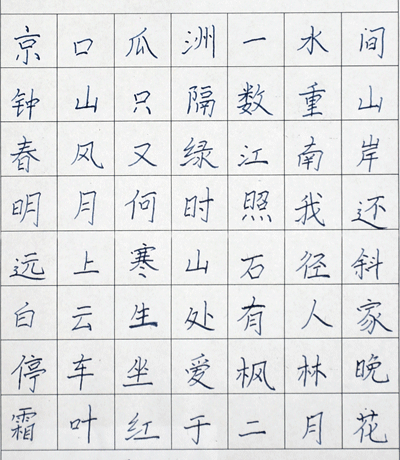 京口瓜洲一水间
钟山只隔数重山
春风又绿江南岸
明月何时照我还
远上寒山石径斜
白云生处有人家
停车坐爱枫林晚
霜叶红于二月花